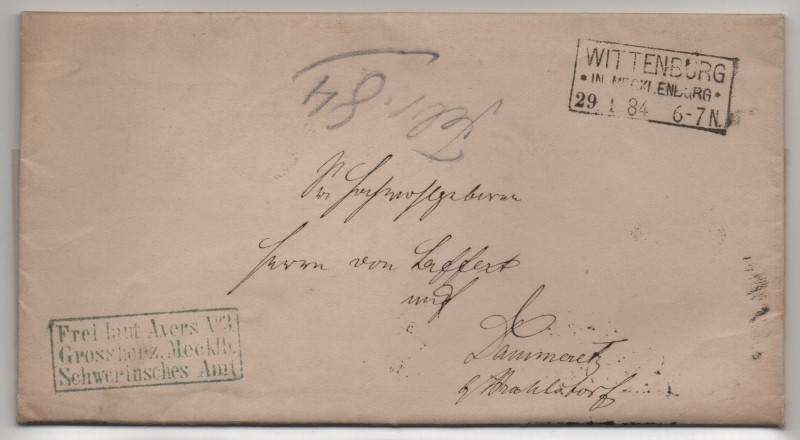 WITTENBURG
* IN MECKLENBURG *
29 1 84 6-7 N.
84
Sr Hochwohlgeboren
Herrn von Laffert
auf
Dammeretz
Frei laut Avers № 3
Grossherz. Mecklb.
Schwerinsches Amt